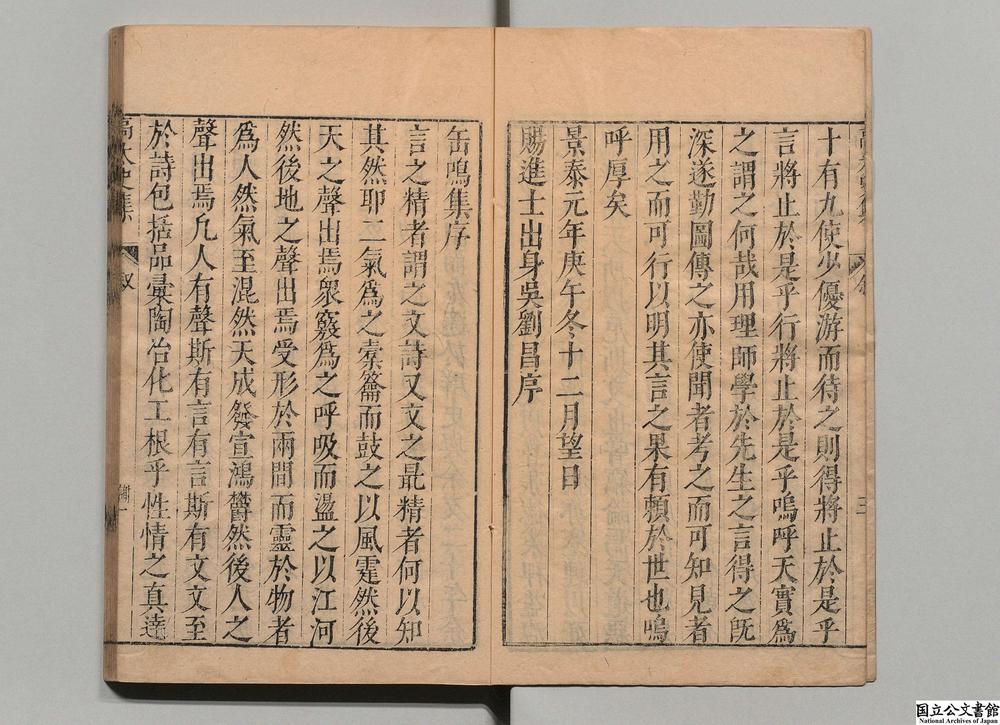 十有九使少優游而待之則得將止於是乎
言將止於是乎行將止於是乎嗚呼天實爲
之謂之何哉用理師學於先生之言得之旣
深遂勤圖傳之亦使聞者考之而可知見者
用之而可行以明其言之果有頼於世也嗚
呼厚矣
景泰元年庚午冬十二月望日
賜進士出身吳劉昌序
缶鳴集序
言之精者謂之文詩又文之最精者何以知
其然耶二氣爲之橐籥而鼓之以風霆然後
天之聲出焉衆竅爲之呼吸而盪之以江河
然後地之聲出焉受形於兩間而靈於物者
爲人然氣至混然天成發宣鴻欝然後人之
聲出焉凡人有聲斯有言有言斯有文文至
於詩包括品彙陶冶化工根乎性情之真達
高太史集
叙
国立公文書館
National Archives of Japan